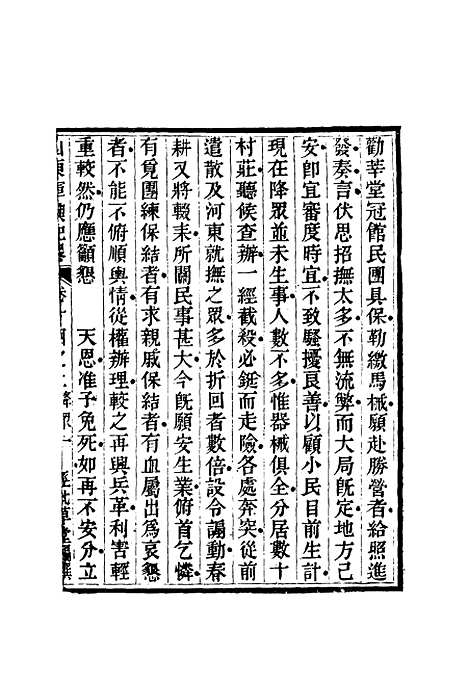 勸莘堂冠館民團具保勒繳馬械願赴勝營者給照進
發奏言伏思招撫太多不無流弊而大局旣定地方已
安卽宜審度時宜不致騷擾良善以顧小民目前生計
現在降眾並未生事人數不多惟器械俱全分居數十
村莊聽候查辦一經截殺必鋌而走險各處奔突從前
遣散及河東就撫之眾多於折回者數倍設令謠動春
耕又將輟耒所關民事甚大今旣願安生業俯首乞憐
有覓團練保結者有求親戚保結者有血屬出爲哀懇
者不能不俯順輿情從權辦理較之再興兵革利害輕
重較然仍應籲懇　天恩准予免死如再不安分立
山東軍興紀畧